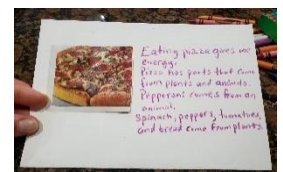 Eating pizza gives me
energy.
Pizza has parts that come
from plants and animals.
Pepperoni comes from an
animal.
Spinach, peppers, tomatoes,
and bread come from plants.